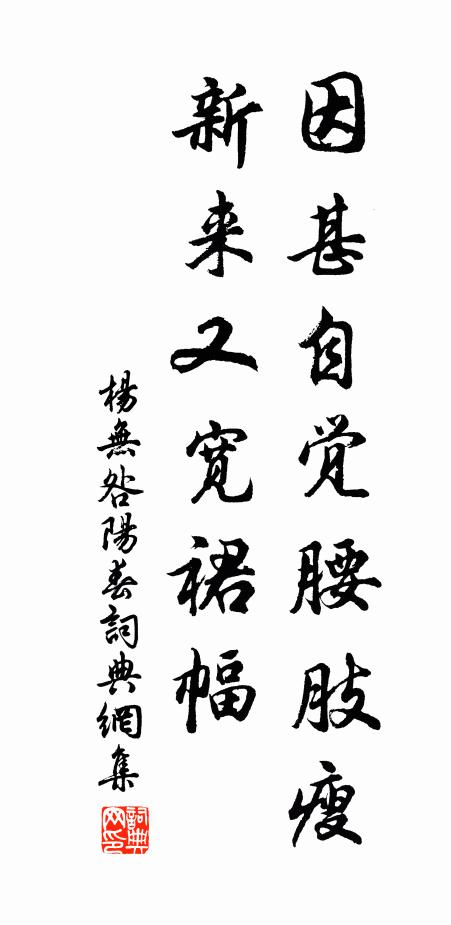 因甚自觉腰肢瘦
新来又宽裙幅
楊無咎陽春詞典網集
詞典网印